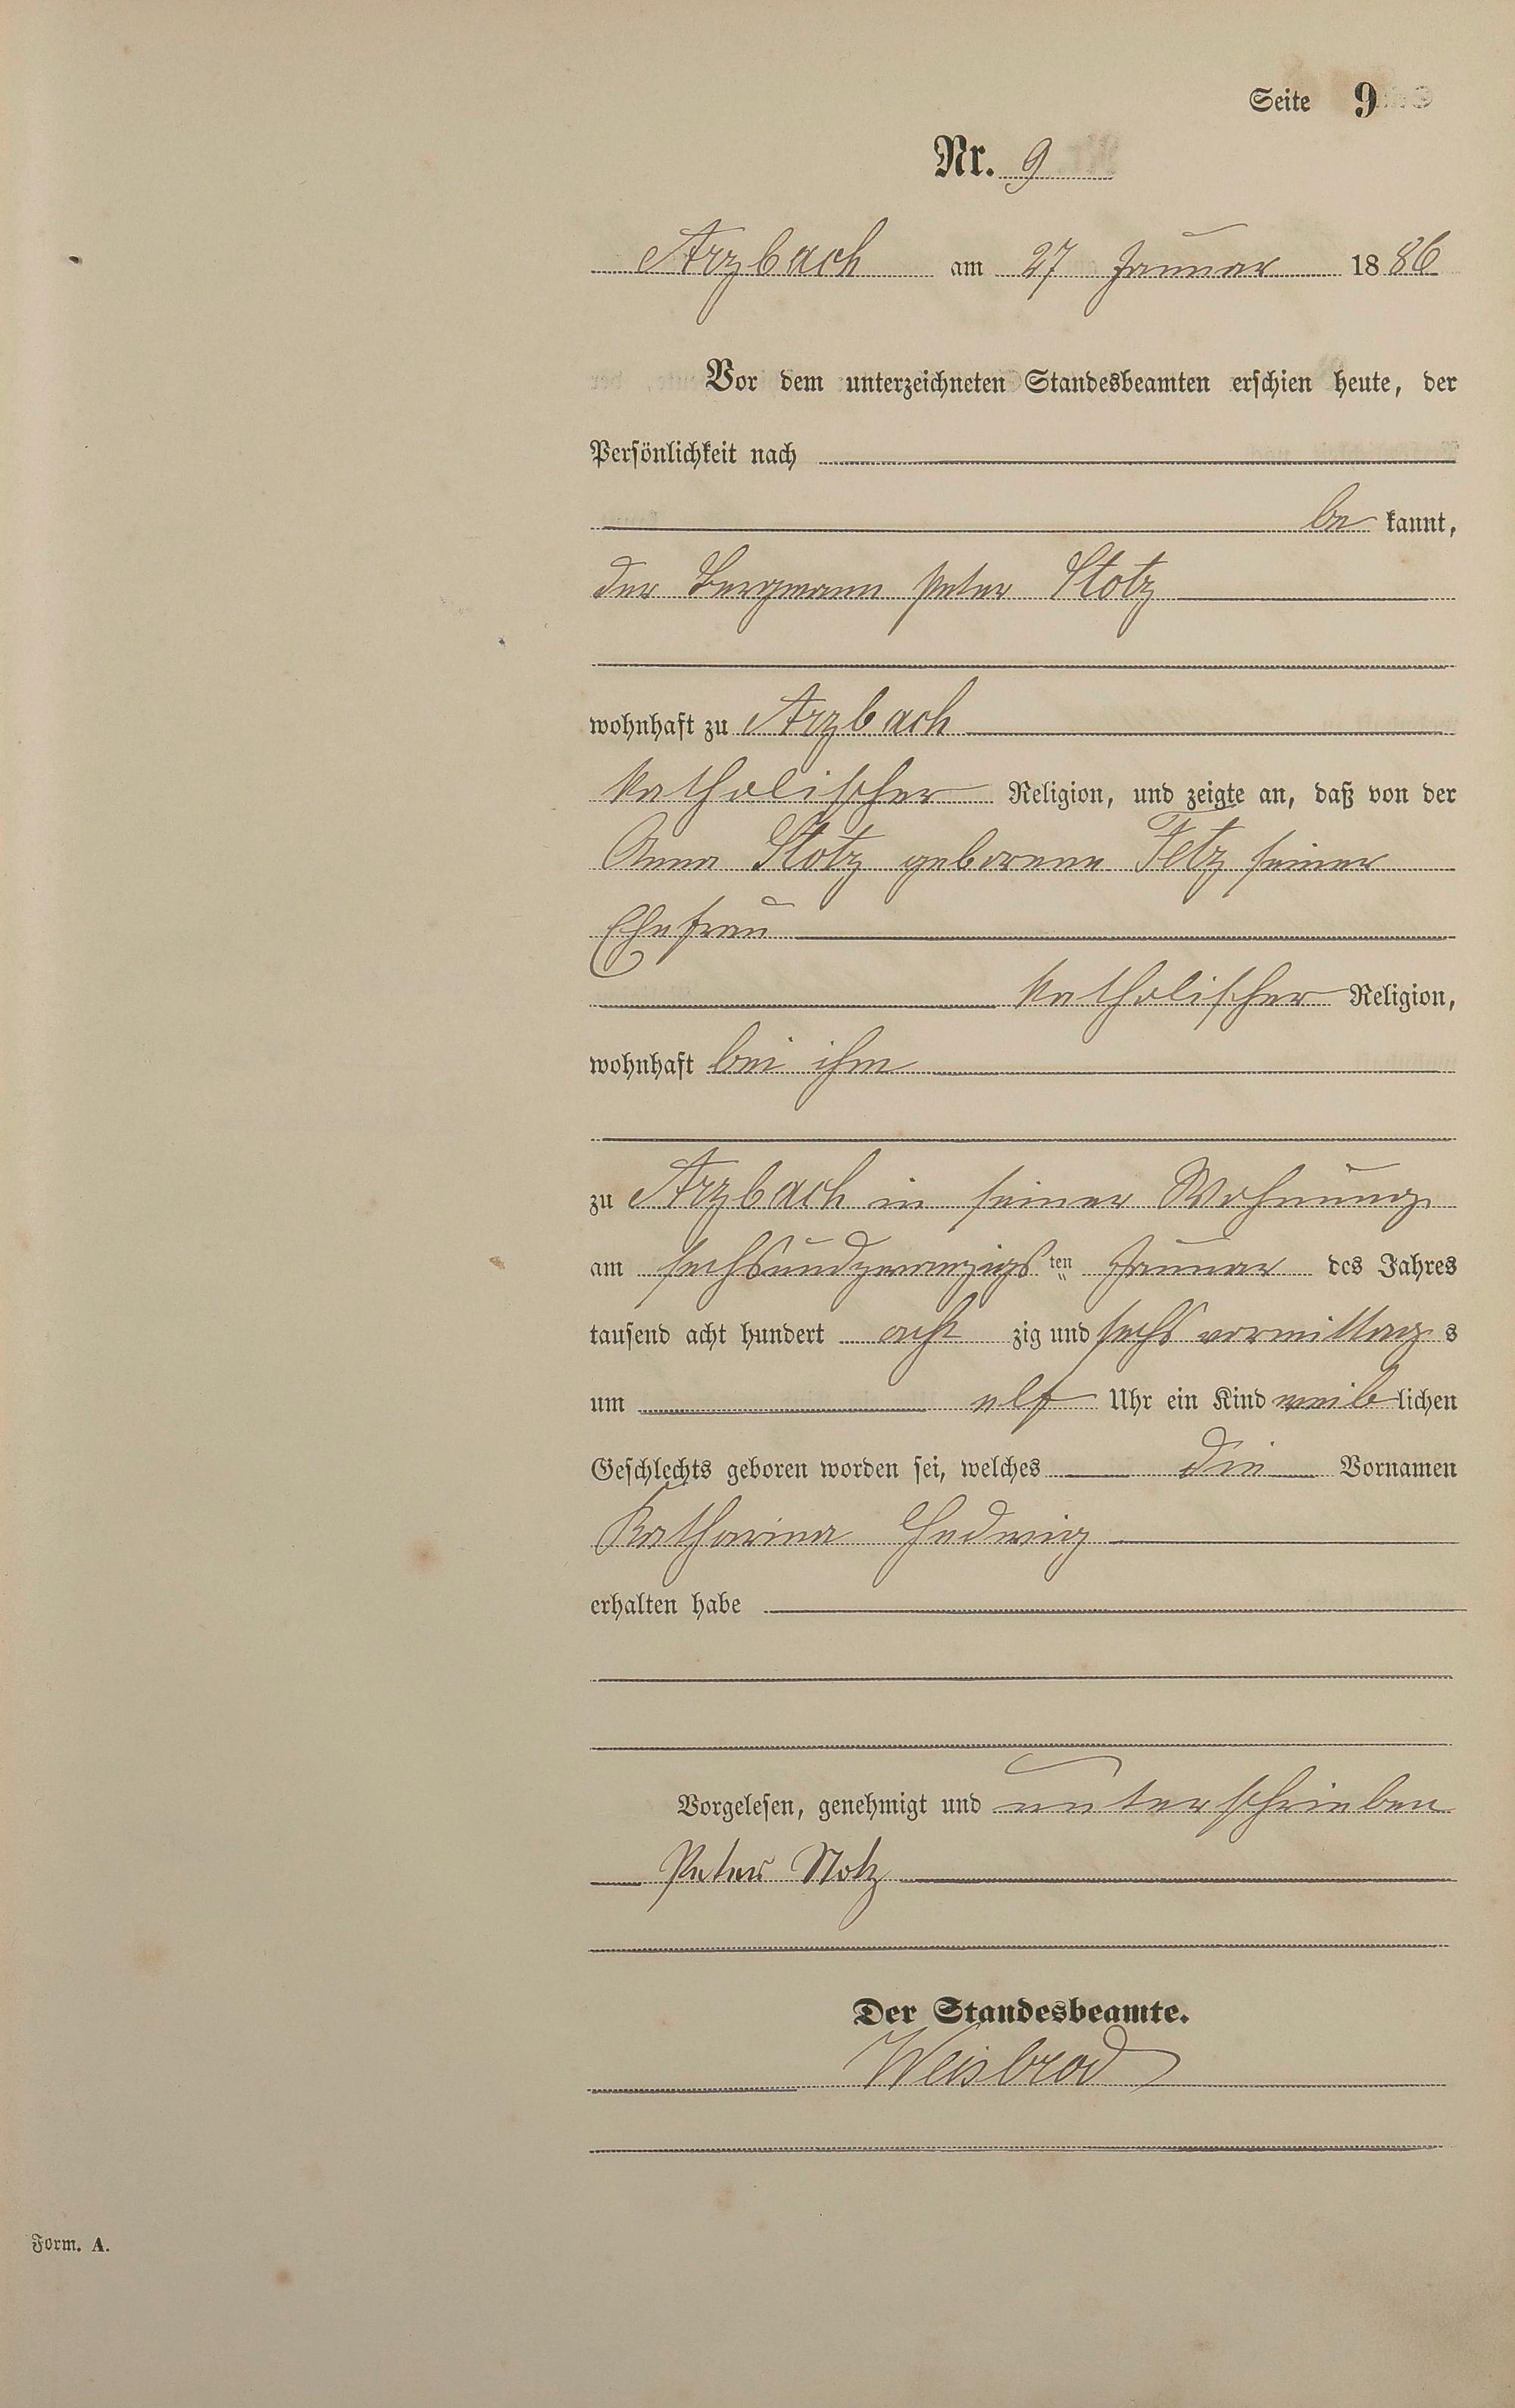 Seite 9
Nr. 9
Arzbach am 27 Januar 1886
Vor dem unterzeichneten Standesbeamten erschien heute, der
Persönlichkeit nach
be kannt,
der Bergmann Peter Stotz
wohnhaft zu Arzbach
katholischer Religion, und zeigte an, daß von der
Anna Stotz geborene Fetz seiner
Ehefrau
katholischer Religion,
wohnhaft bei ihm
zu Arzbach in seiner Wohnung
am sechsundzwanzigsten Januar des Jahres
tausend acht hundert acht zig und sechs vormittags
um elf Uhr ein Kind weiblichen
Geschlechts geboren worden sei, welches die Vornamen
Katharina Hedwig
erhalten habe
Vorgelesen, genehmigt und unterschrieben
Peter Stotz
Der Standesbeamte.
Weisbrod
Form. A.